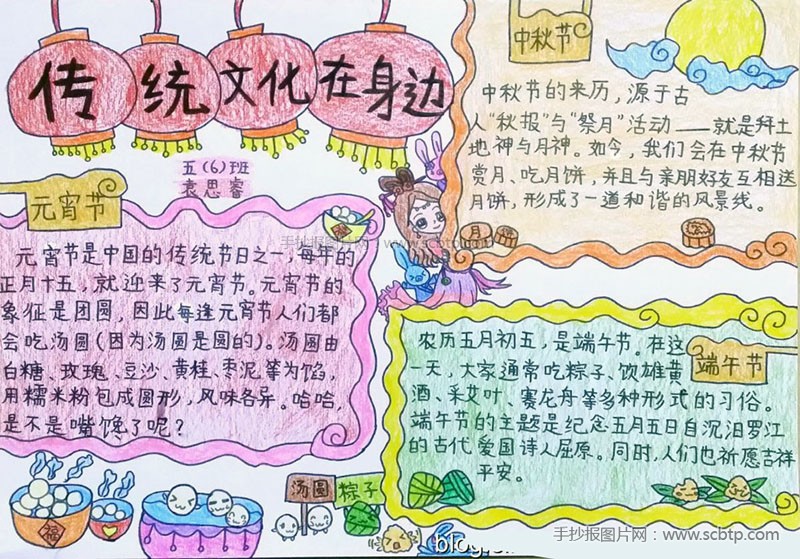 传统文化在身边
五(6)班
袁思睿
元宵节
元宵节是中国的传统节日之一,每年的
正月十五,就迎来了元宵节。元宵节的
象征是团圆,因此每逢元宵节人们都
会吃汤圆(因为汤圆是圆的)。汤圆由
白糖、玫瑰、豆沙、黄桂、枣泥等为馅,
用糯米粉包成圆形,风味各异。哈哈,
是不是嘴馋了呢?
中秋节
中秋节的来历,源于古
人“秋报”与“祭月”活动——就是拜土
地神与月神。如今,我们会在中秋节
赏月、吃月饼,并且与亲朋好友互相送
月饼,形成了一道和谐的风景线。
月
端午节
农历五月初五,是端午节。在这
一天,大家通常吃粽子、饮雄黄
酒、采艾叶、赛龙舟等多种形式的习俗。
端午节的主题是纪念五月五日自沉汨罗江
的古代爱国诗人屈原。同时,人们也祈愿吉祥
平安。
福
汤圆
粽子
手抄报图片网 - www.scbtp.com
手抄报图片网:www.scbtp.com
blog.